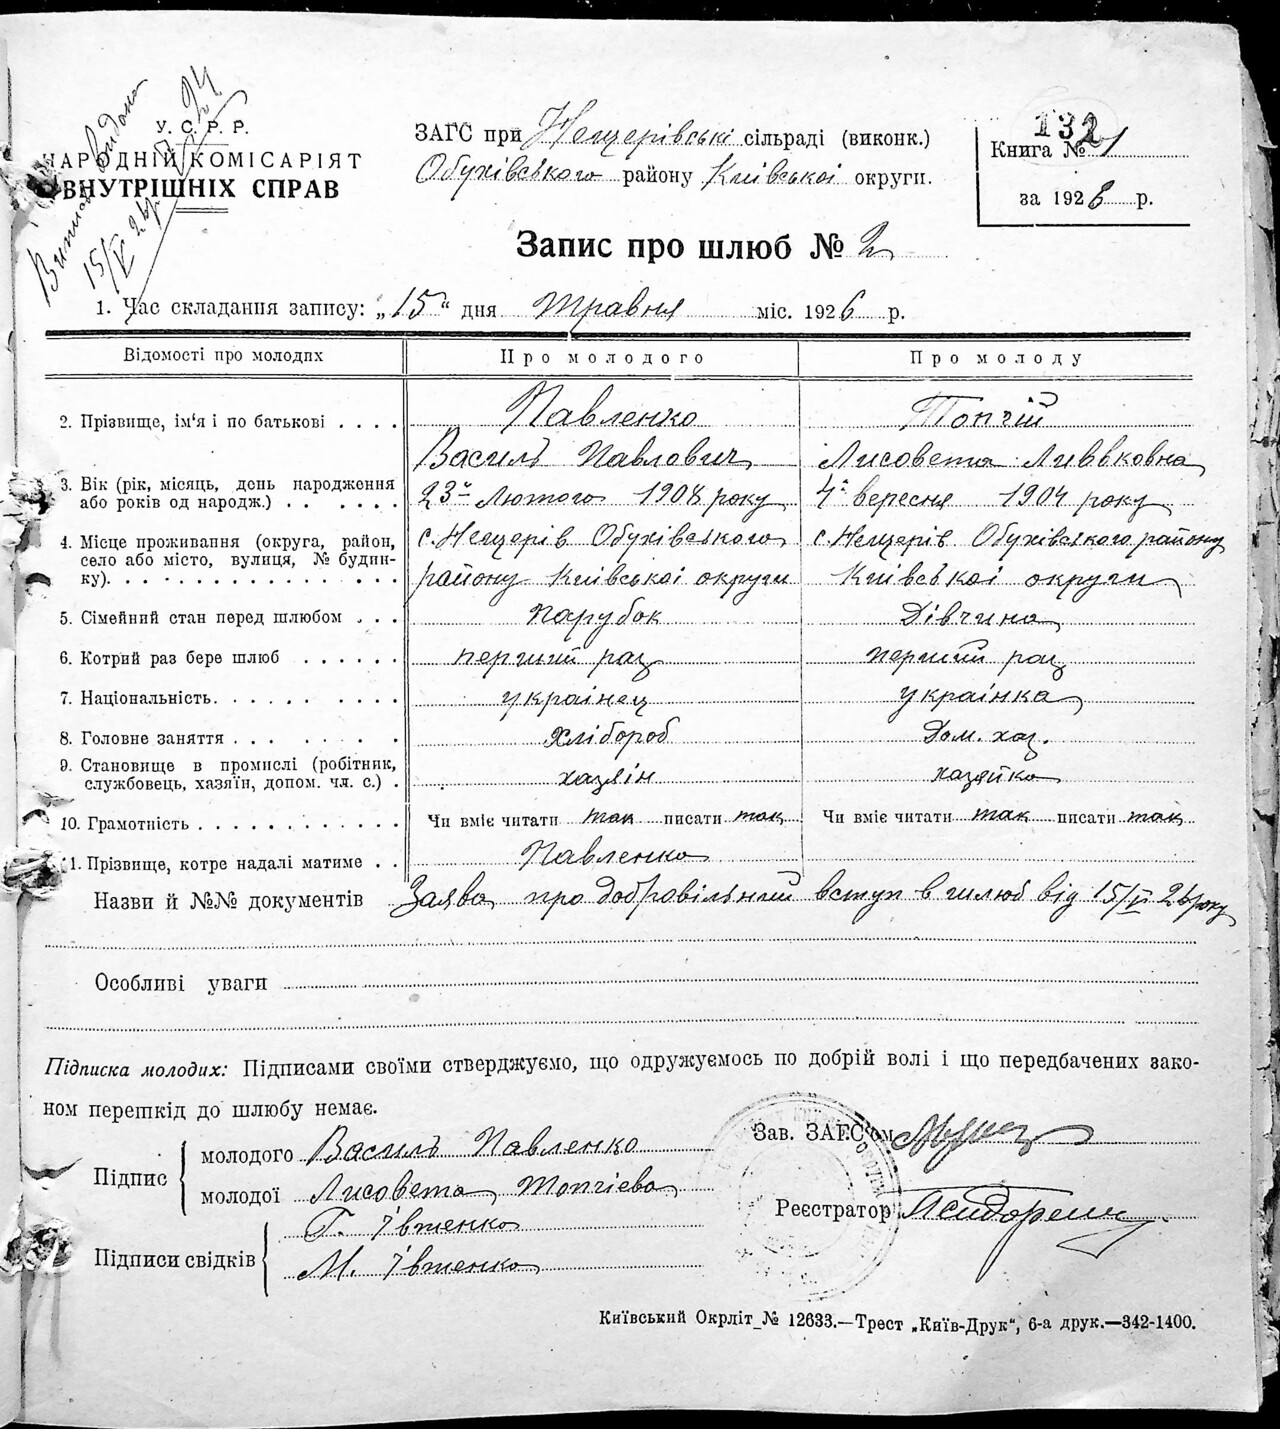 Виписъ видана
15/V 26 р.
У. С. Р. Р.
НАРОДНІЙ КОМІСАРІЯТ
ВНУТРІШНІХ СПРАВ
ЗАГС при Нещерівські сільраді (виконк.)
Обухівського району Київської округи.
132
Книга № 1
за 1926 р.
Запис про шлюб № 2
1. Час складання запису: „15“ дня травня міс. 1926 р.
Відомості про молодих Про молодого Про молоду
2. Прізвище, ім‘я і по батькові . . . . Павленко Топчій
Василь Павлович Лисовета Ливвковна
3. Вік (рік, місяць, день народження 23го Лютого 1908 року 4го вересня 1904 року
або років од народж.) . . . . . .
4. Місце проживання (округа, район, с. Нещерів Обухівського с. Нещерів Обухівського району
село або місто, вулиця, № будин-
ку). . . . . . . . . . . . . . . . . району Київської округи Київської округи
5. Сімейний стан перед шлюбом . . . Парубок Дівчина
6. Котрий раз бере шлюб . . . . . . перший раз перший раз
7. Національність. . . . . . . . . . українец українка
8. Головне заняття . . . . . . . . Хлібороб Дом. хаз.
9. Становище в промислі (робітник,
службовець, хазяїн, допом. чл. с.) . хазяін хазяйка
10. Грамотність . . . . . . . . . . . . Чи вміє читати так писати так Чи вміє читати так писати так
11. Прізвище, котре надалі матиме . . Павленко
Назви й №№ документів Заява про добровільний вступ в шлюб від 15/V 26 року
Особливі уваги
Підписка молодих: Підписами своїми стверджуємо, що одружуємось по добрій волі і що передбачених зако-
ном перешкід до шлюбу немає.
Підпис
молодого Василь Павленко
молодої Лисовета Топчієва
Підписи свідків
Г. Івженко
М. Івженко
Зав. ЗАГС‘ом
Реєстратор
Київський Окрліт № 12633.—Трест „Київ-Друк“, 6-а друк.—342-1400.